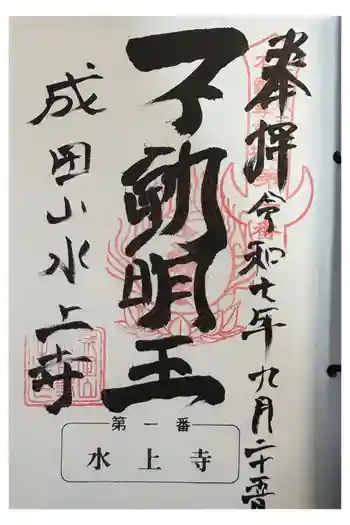 奉拝
令和七年九月二十一日
不動明王
成田山水上寺
第一番
水上寺